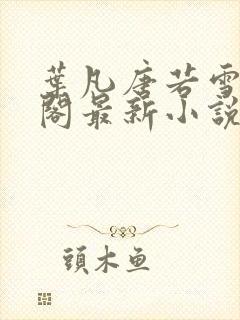 葉凡唐若雪
閣最新小說
頭木魚